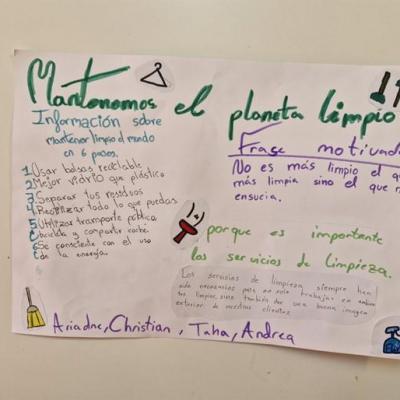 Mantenemos el planeta limpio
Información sobre
mantener limpio el mundo
en 6 pasos.
1 Usar bolsas reciclable
2 Mejor vidrio que plástico
3 Separar tus residuos
4 Reutilizar todo lo que puedas
5 Utilizar transporte público
bicicleta y compartir coche
6 Se consciente con el uso
de la energía.
Frase motivado
No es más limpio el qu
más limpia sino el que m
ensucia.
porque es importante
los servicios de limpieza.
Los servicios de limpieza siempre han
sido necesarios para no solo trabajar en
tes limpios, sino también dar una buena imagen
exterior de nuestros clientes
Ariadne, Christian, Taha, Andrea